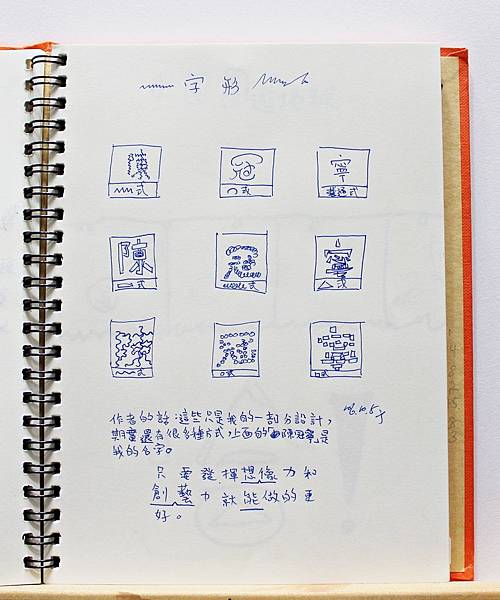 字形
陳 冠 寧
式 式 普通式
陳 冠 寧
式 式 △式
陳 冠 寧
式 o式 □式
作者的話:這些只是我的一部分設計,
期實還有很多種方式,上面的「陳冠寧」是
我的名字。
只要發揮想像力和
創藝力就能做的更
好。